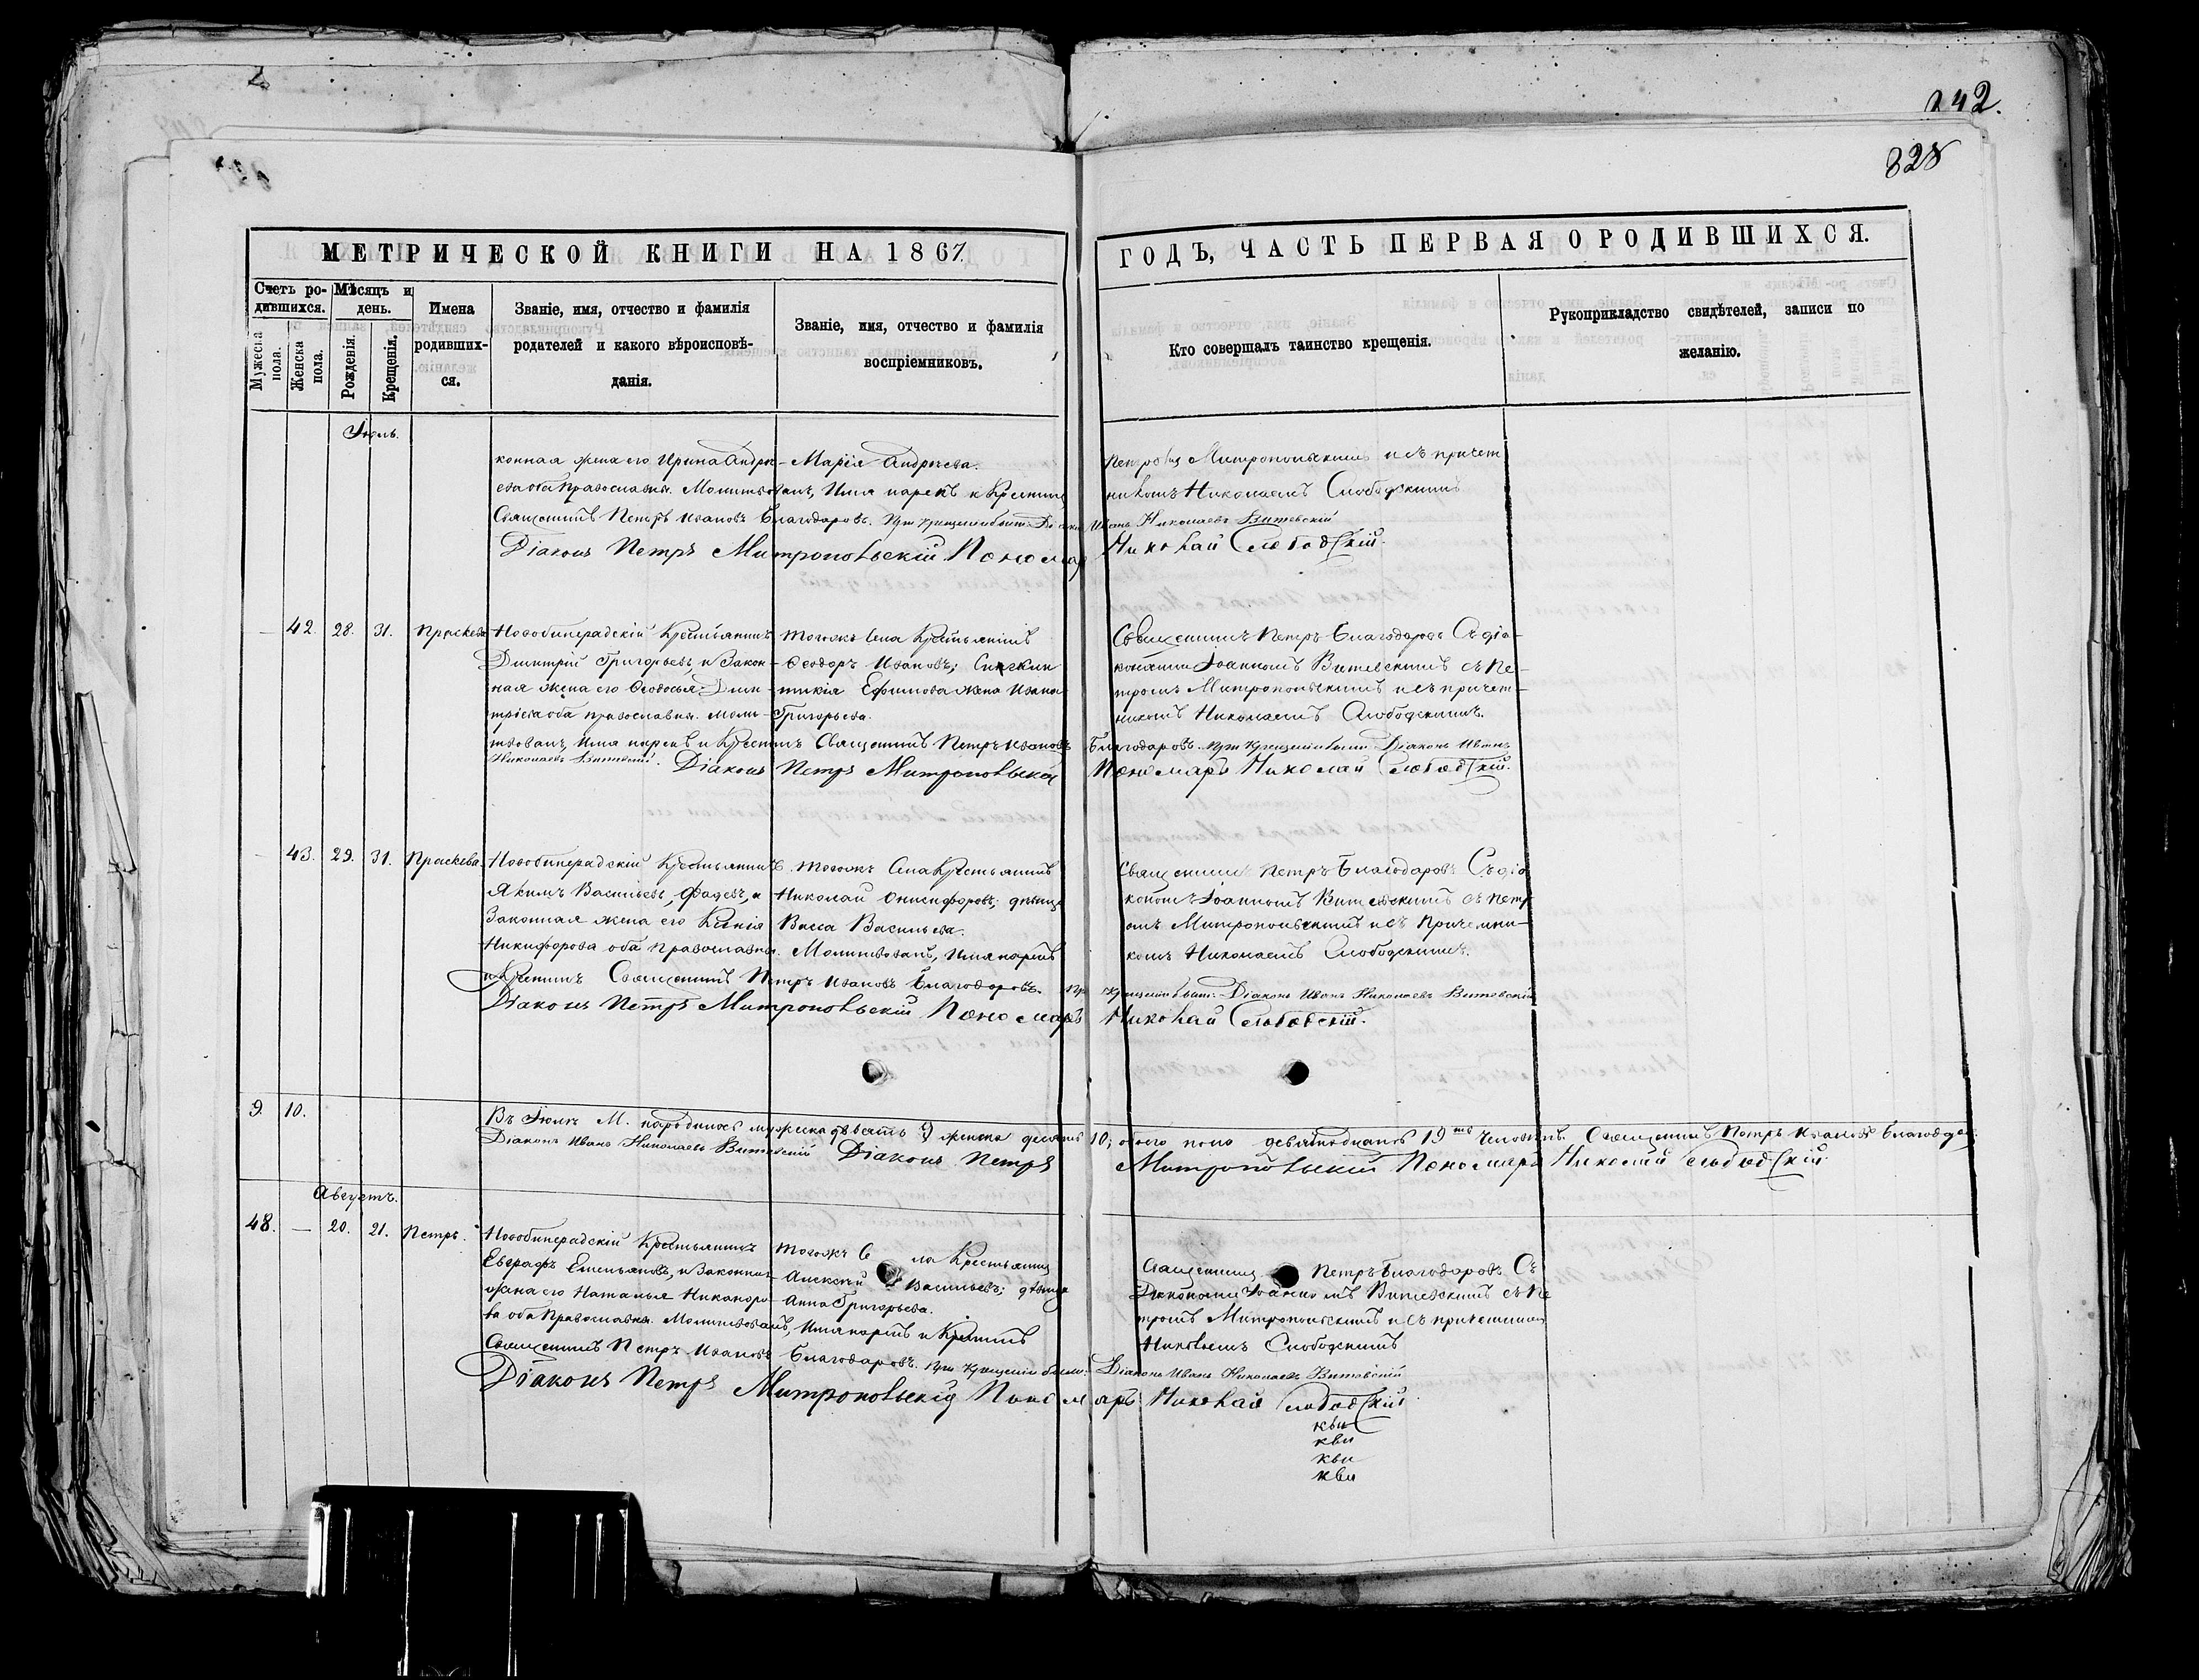 242.
828
МЕТРИЧЕСКОЙ КНИГИ НА 1867
ГОДЪ, ЧАСТЬ ПЕРВАЯ О РОДИВШИХСЯ.
Счетъ ро-
дившихся.
Мужеска пола.
Женска пола.
Мѣсяцъ и
день.
Рожденія.
Крещенія.
Имена
родивших-
ся.
Званіе, имя, отчество и фамилія
родителей и какого вѣроисповѣ-
данія.
Званіе, имя, отчество и фамилія
воспріемниковъ.
Кто совершалъ таинство крещенія.
Рукоприкладство свидѣтелей, записи по
желанію.
Іюль.
конная жена его Ирина Андре-
ева оба православны.
Марія Андреева.
Молитвовалъ, имя нарекъ и крестилъ
Священникъ Петръ Ивановъ Благодаровъ. При крещеніи были: Діаконъ Иванъ Николаевъ Витевскій
Діаконъ Петръ Митропольскій Пономарь Николай Слободскій.
Петромъ Митропольскимъ и съ причет
никомъ Николаемъ Слободскимъ
42. 28. 31. Праскева
Новобинарадскій Крестьянинъ
Дмитрій Григорьевъ, и Закон-
ная жена его Ѳеодосья Дми-
тріева оба православны. Моли-
тогожъ села Крестьянинъ
Ѳеодоръ Ивановъ; Синкли-
тикія Ефимова жена Ивана
Григорьева.
Священникъ Петръ Благодаровъ Съ діа-
конами Іоанномъ Витевскимъ съ Пе-
тромъ Митропольскимъ и съ причет-
никомъ Николаемъ Слободскимъ.
твовалъ, имя нарекъ и Крестилъ Священникъ Петръ Ивановъ Благодаровъ. При крещеніи были Діаконъ Иванъ
Николаевъ Витевскій. Діаконъ Петръ Митропольскій Пономарь Николай Слободскій.
43. 29. 31. Праскева.
Новобинарадскій Крестьянинъ
Якимъ Васильевъ, Фадеевъ, и
Законная жена его Ксенія
Никифорова оба православны.
тогожъ Села Крестьянинъ
Николай Онисифоровъ; дѣвица
Васса Васильева.
Молитвовалъ, имя нарекъ
и Крестилъ Священникъ Петръ Ивановъ Благодаровъ. При крещеніи были: Діаконъ Иванъ Николаевъ Витевскій
Діаконъ Петръ Митропольскій Пономарь Николай Слободскій.
Священникъ Петръ Благодаровъ Съ діа
кономъ Іоанномъ Витевскимъ съ Петр
омъ Митропольскимъ и съ Причетни-
комъ Николаемъ Слободскимъ.
9. 10.
Въ Іюлѣ М. народилось мужска девять 9, женска десять 10; обоего пола девятнадцать 19ть человѣкъ. Священникъ Петръ Ивановъ Благодар.
Діаконъ Иванъ Николаевъ Витевскій Діаконъ Петръ Митропольскій Пономарь Николай Слободскій.
Августъ.
48. — 20. 21. Петръ.
Новобинарадскій Крестьянинъ
Евграфъ Емельяновъ, и Законная
жена его Наталья Никаноро-
ва оба Православны.
тогожъ Села Крестьянинъ
Алексѣй Васильевъ; дѣвица
Анна Григорьева.
Молитвовалъ, имя нарекъ и Крестилъ
Священникъ Петръ Ивановъ Благодаровъ. При крещеніи были: Діаконъ Иванъ Николаевъ Витевскій
Діаконъ Петръ Митропольскій Пономарь Николай Слободскій
Священникъ Петръ Благодаровъ Съ
Діаконами Іоанномъ Витевскимъ съ Пе
тромъ Митропольскимъ и съ причетникомъ
Николаемъ Слободскимъ